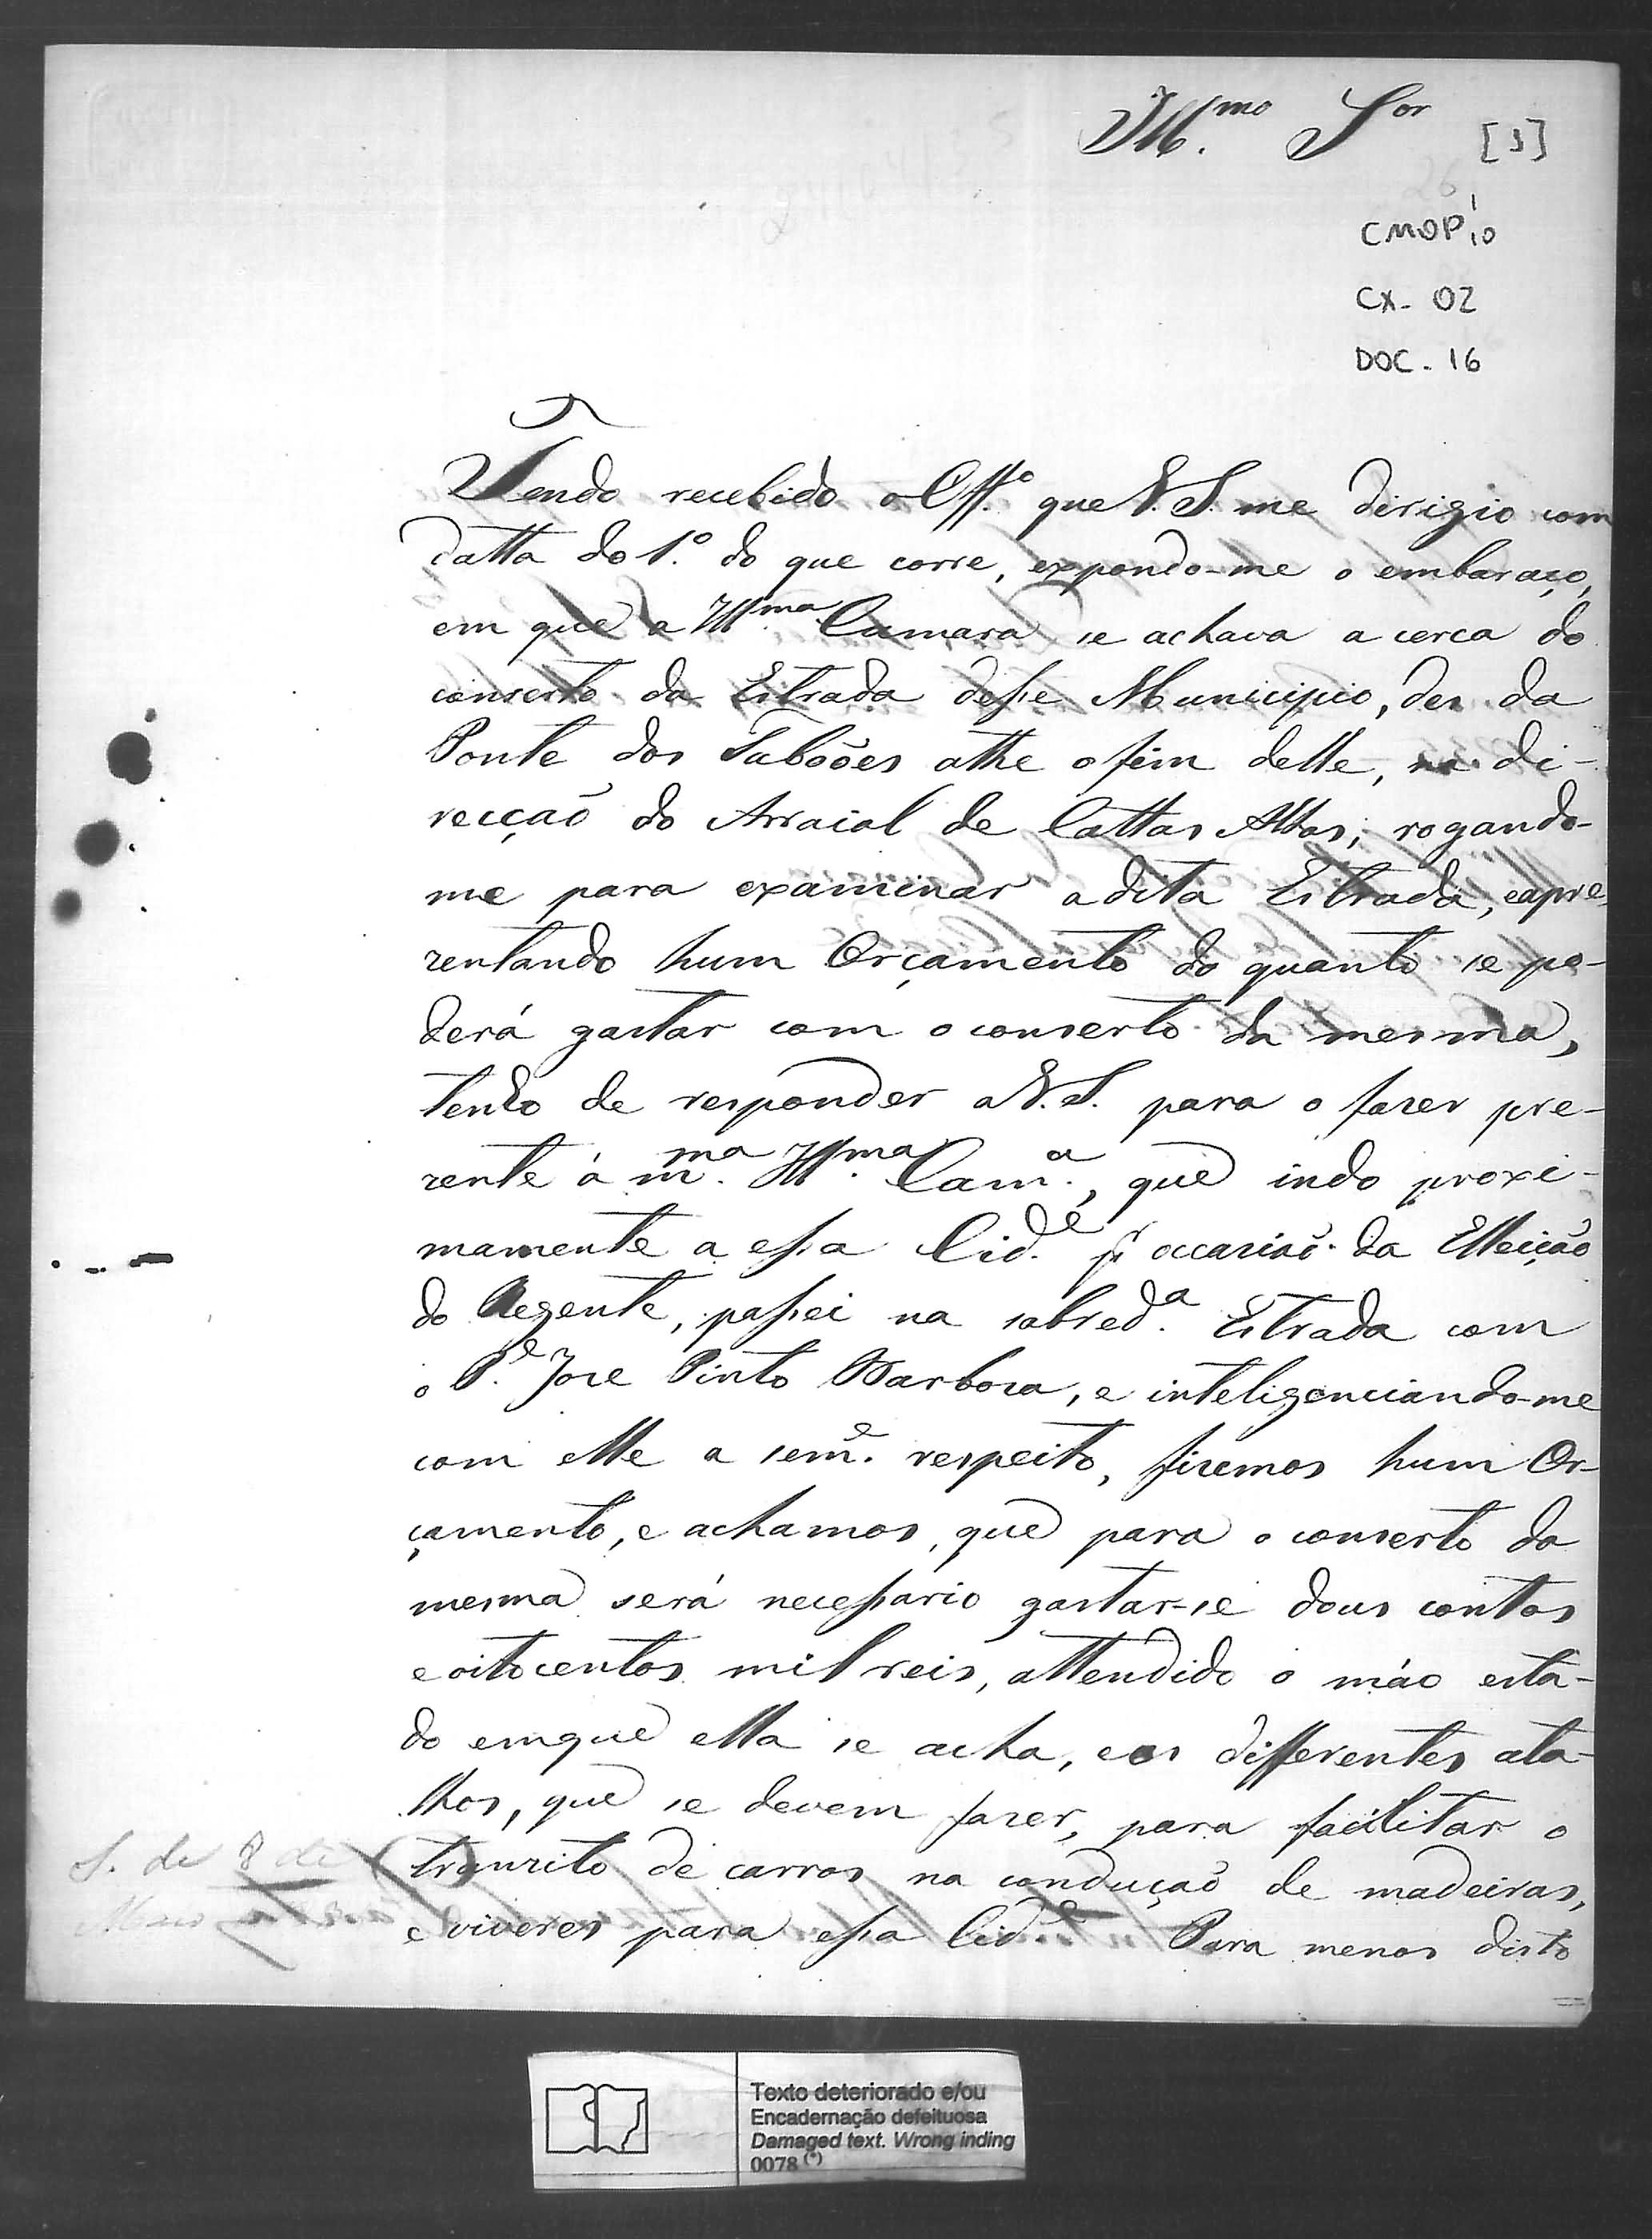 Ill.mo Sor
[1]
CMOP 1/10
CX- 02
DOC - 16
Tendo recebido o Off.o que V. S. me dirigio com
datta do 1.o do que corre, expondo-me o embaraço,
em que a Ill.ma Camara se achava a cerca do
conserto da Estrada desse Municipio, des da
Ponte dos Taboões athe o fim delle, na di-
recção do Arraial de Cattas Altas; rogando-
me para examinar a dita Estrada, e apre-
zentando hum Orçamento do quanto se po-
derá gastar com o conserto da mesma,
tenho de responder a V. S. para o fazer pre-
zente á m.ma Ill.ma Cam.a, que indo proxi-
mamente a essa Cid.e p.r occazião da Elleição
do Regente, passei na sobred.a Estrada com
o P.e Joze Pinto Barboza, e inteligenciando-me
com elle a sem.e respeito, fizemos hum Or-
çamento, e achamos, que para o conserto da
mesma será necessario gastar-se dous contos
e oitocentos mil reis, attendido o máo esta-
do em que ella se acha, e os differentes ata-
lhos, que se devem fazer, para facilitar o
tranzito de carros na condução de madeiras,
e viveres para essa Cid.e Para menos disto
S. de 8 de
Texto deteriorado e/ou
Encadernação defeituosa
Damaged text. Wrong inding
0078 (*)